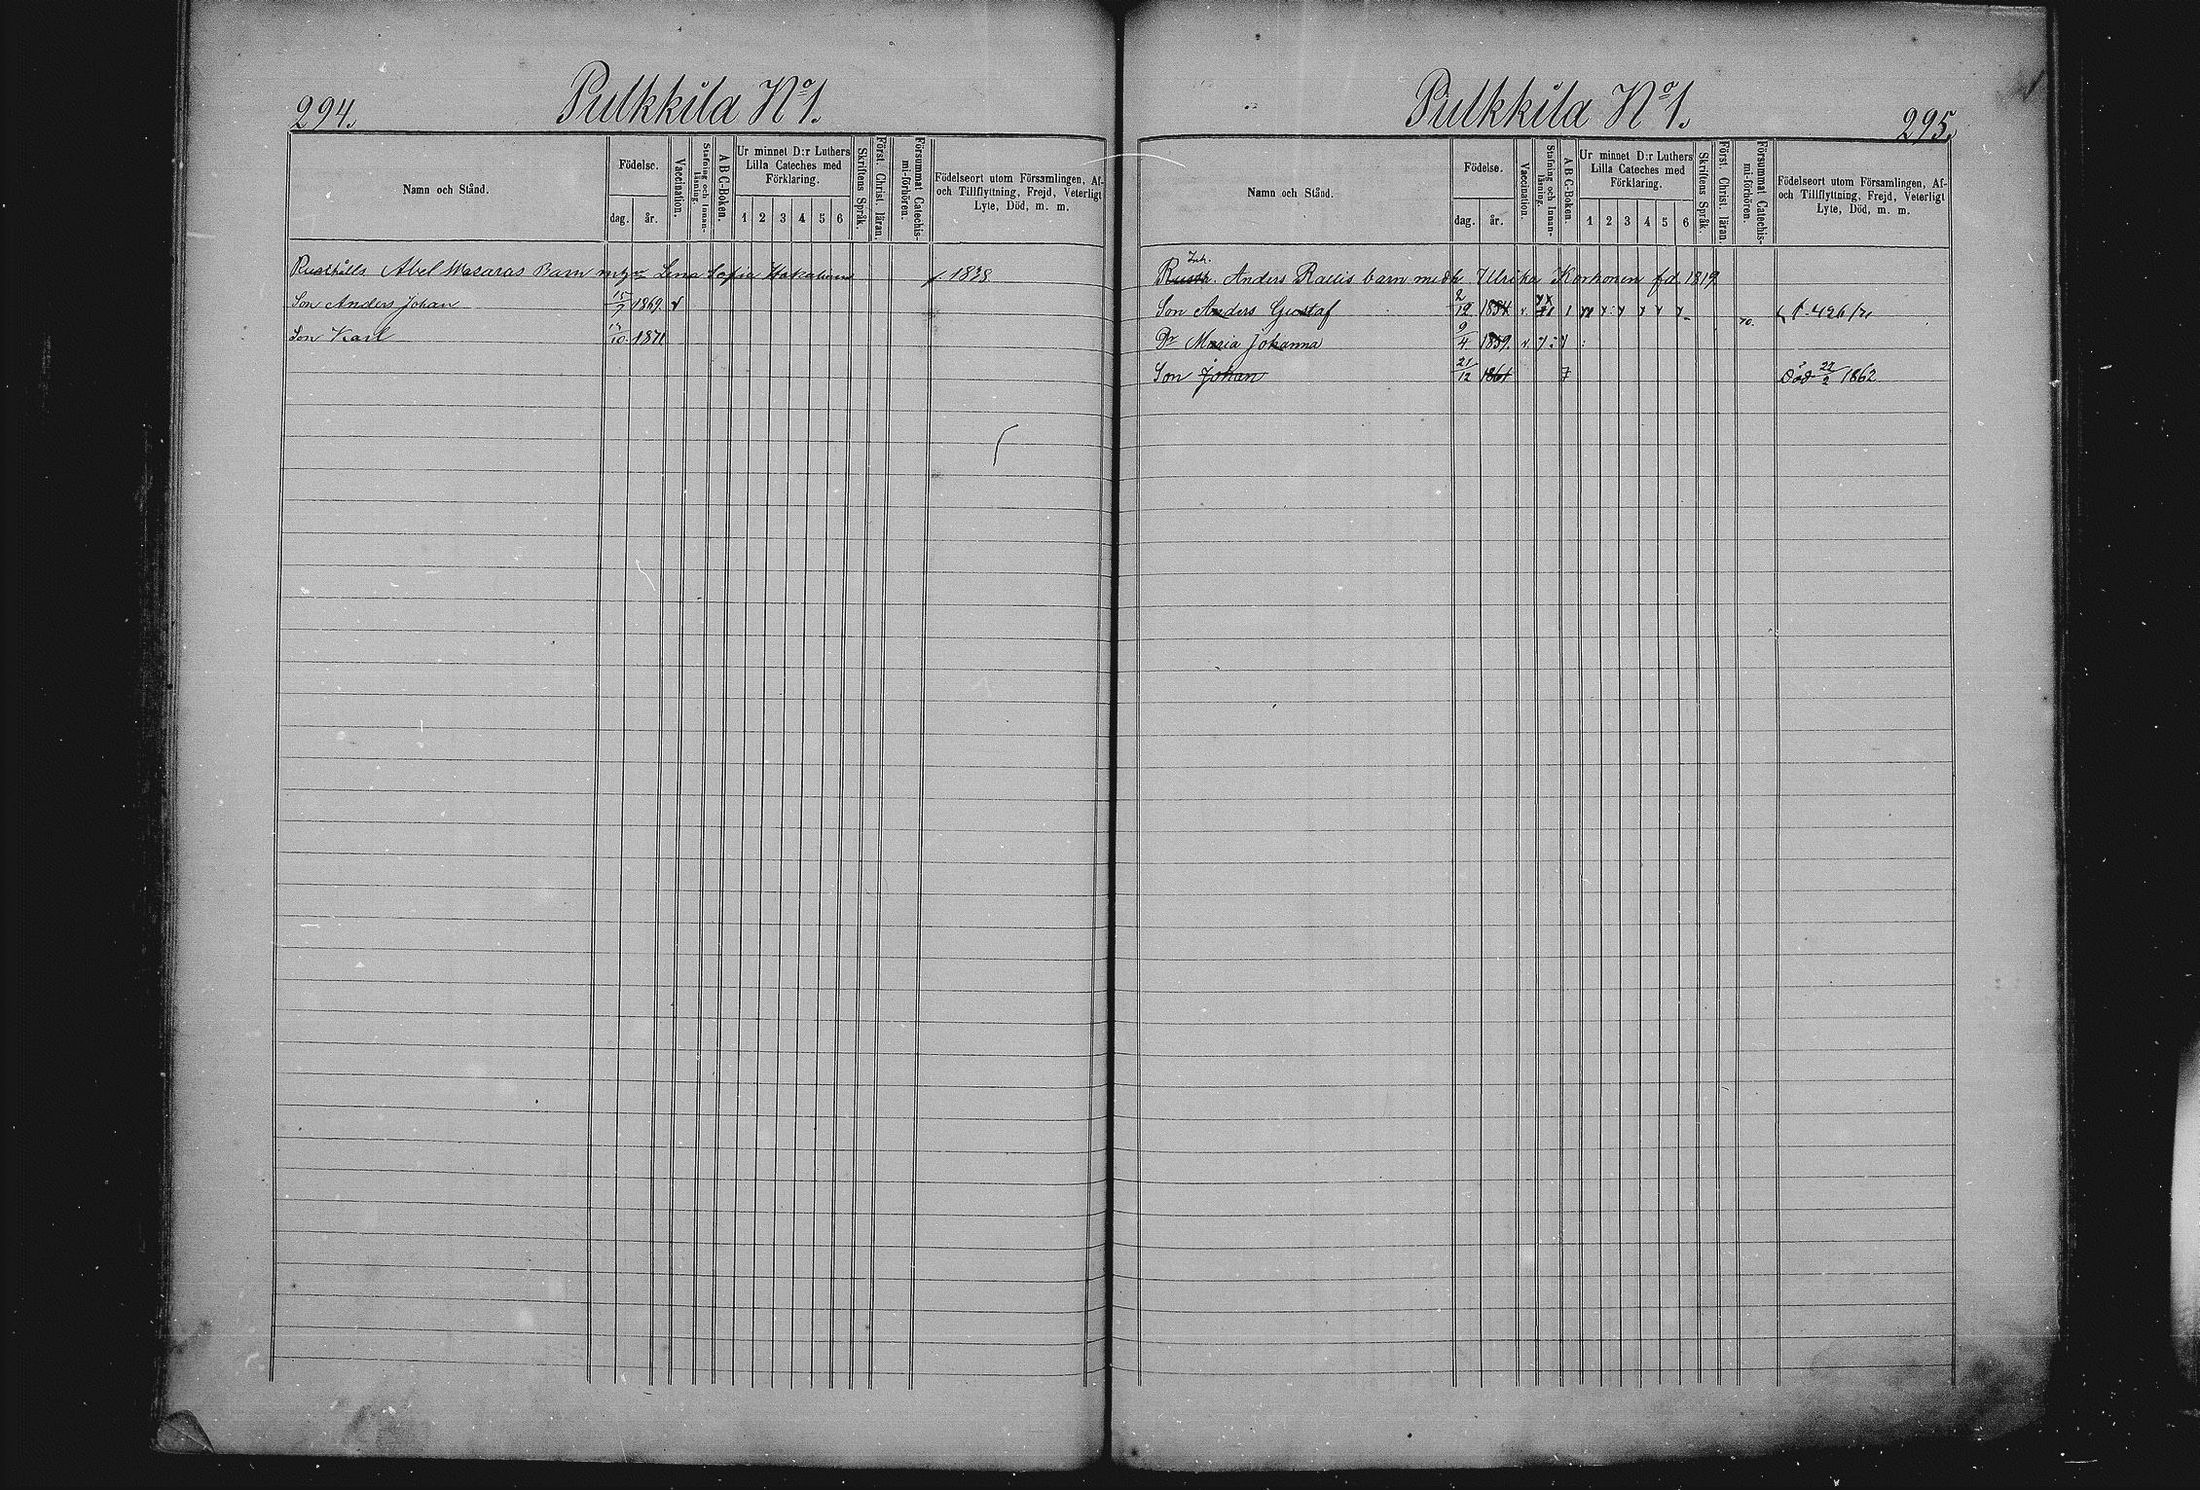 294.
Pulkkila No 1.
Namn och Stånd.
Födelse.
dag.
år.
Vaccination.
Stafning och Innan-
läsning.
A B C-Boken.
Ur minnet D:r Luthers
Lilla Cateches med
Förklaring.
1 2 3 4 5 6
Skriftens Språk.
Först. Christ. läran.
Försummat Catechis-
mi-förhören.
Födelseort utom Församlingen, Af-
och Tillflyttning, Frejd, Veterligt
Lyte, Död, m. m.
Rusthålls Abel Masaras Barn Lena Sofia f. 1838
Son Anders Johan 15/7 1869. v
Son Karl /10 1871
Pulkkila No 1.
295.
Namn och Stånd.
Födelse.
dag.
år.
Vaccination.
Stafning och Innan-
läsning.
A B C-Boken.
Ur minnet D:r Luthers
Lilla Cateches med
Förklaring.
1 2 3 4 5 6
Skriftens Språk.
Först. Christ. läran.
Försummat Catechis-
mi-förhören.
Födelseort utom Församlingen, Af-
och Tillflyttning, Frejd, Veterligt
Lyte, Död, m. m.
Inh.
Rusth. Anders Rallis barn med h. Ulrika Korhonen fd. 1819
Son Anders Gustaf 2/12 1854. v. 70.
Dr Maria Johanna 9/4 1859. v.
Son Johan 21/12 1861 död 22/2 1862